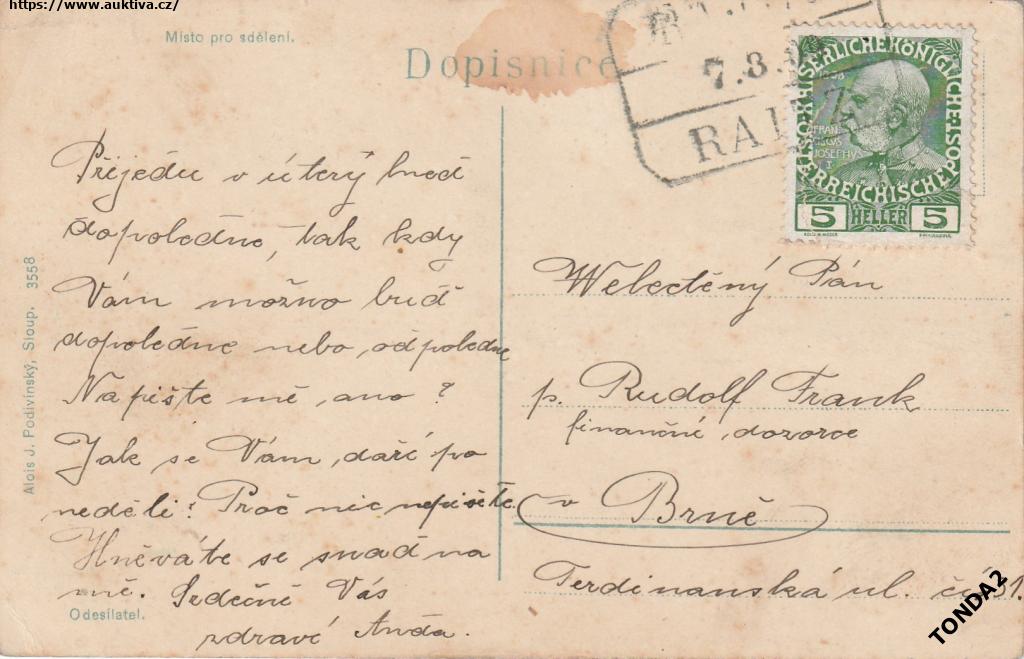 https://www.auktiva.cz/
Místo pro sdělení.
Dopisnice
7.3.
RAITZ
KAISERLICHE KÖNIGLICHE
ÖSTERREICHISCHE POST
1908
FRAN
CISCVS
JOSEPHVS
I.
5 HELLER 5
Přijedu v úterý hned
dopoledne, tak kdy
Vám možno buď
dopoledne nebo, odpoledne
Napište mě, ano?
Jak se Vám, daří po
neděli? Proč nic nepíšete.
Hněváte se snad na
mě. Srdečně Vás
zdraví Anda.
Odesílatel.
Alois J. Podivínský, Sloup. 3558
Welectěný Pán
p. Rudolf Frank
finanční, dozorce
v Brně
Ferdinanská ul. čís 31.
TONDA2